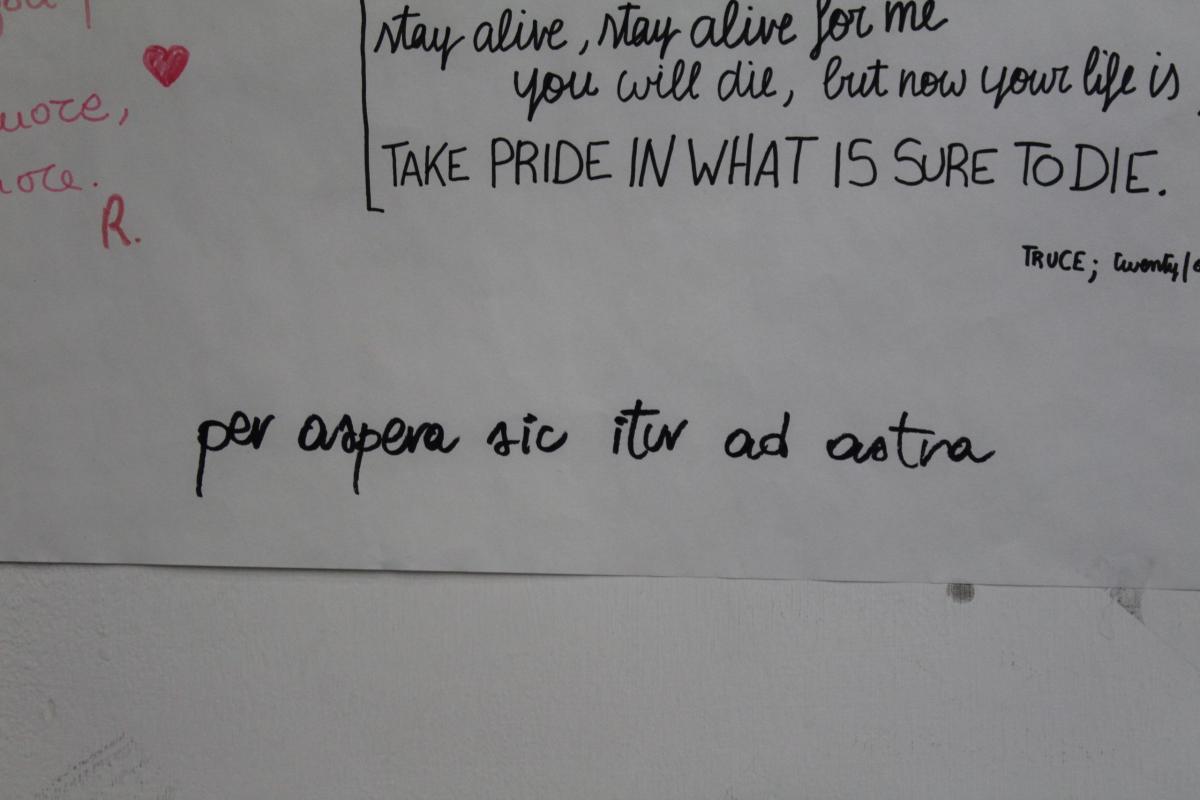 more,
R.
stay alive, stay alive for me
you will die, but now your life is
TAKE PRIDE IN WHAT IS SURE TO DIE.
TRUCE; twenty/
per aspera sic itur ad astra